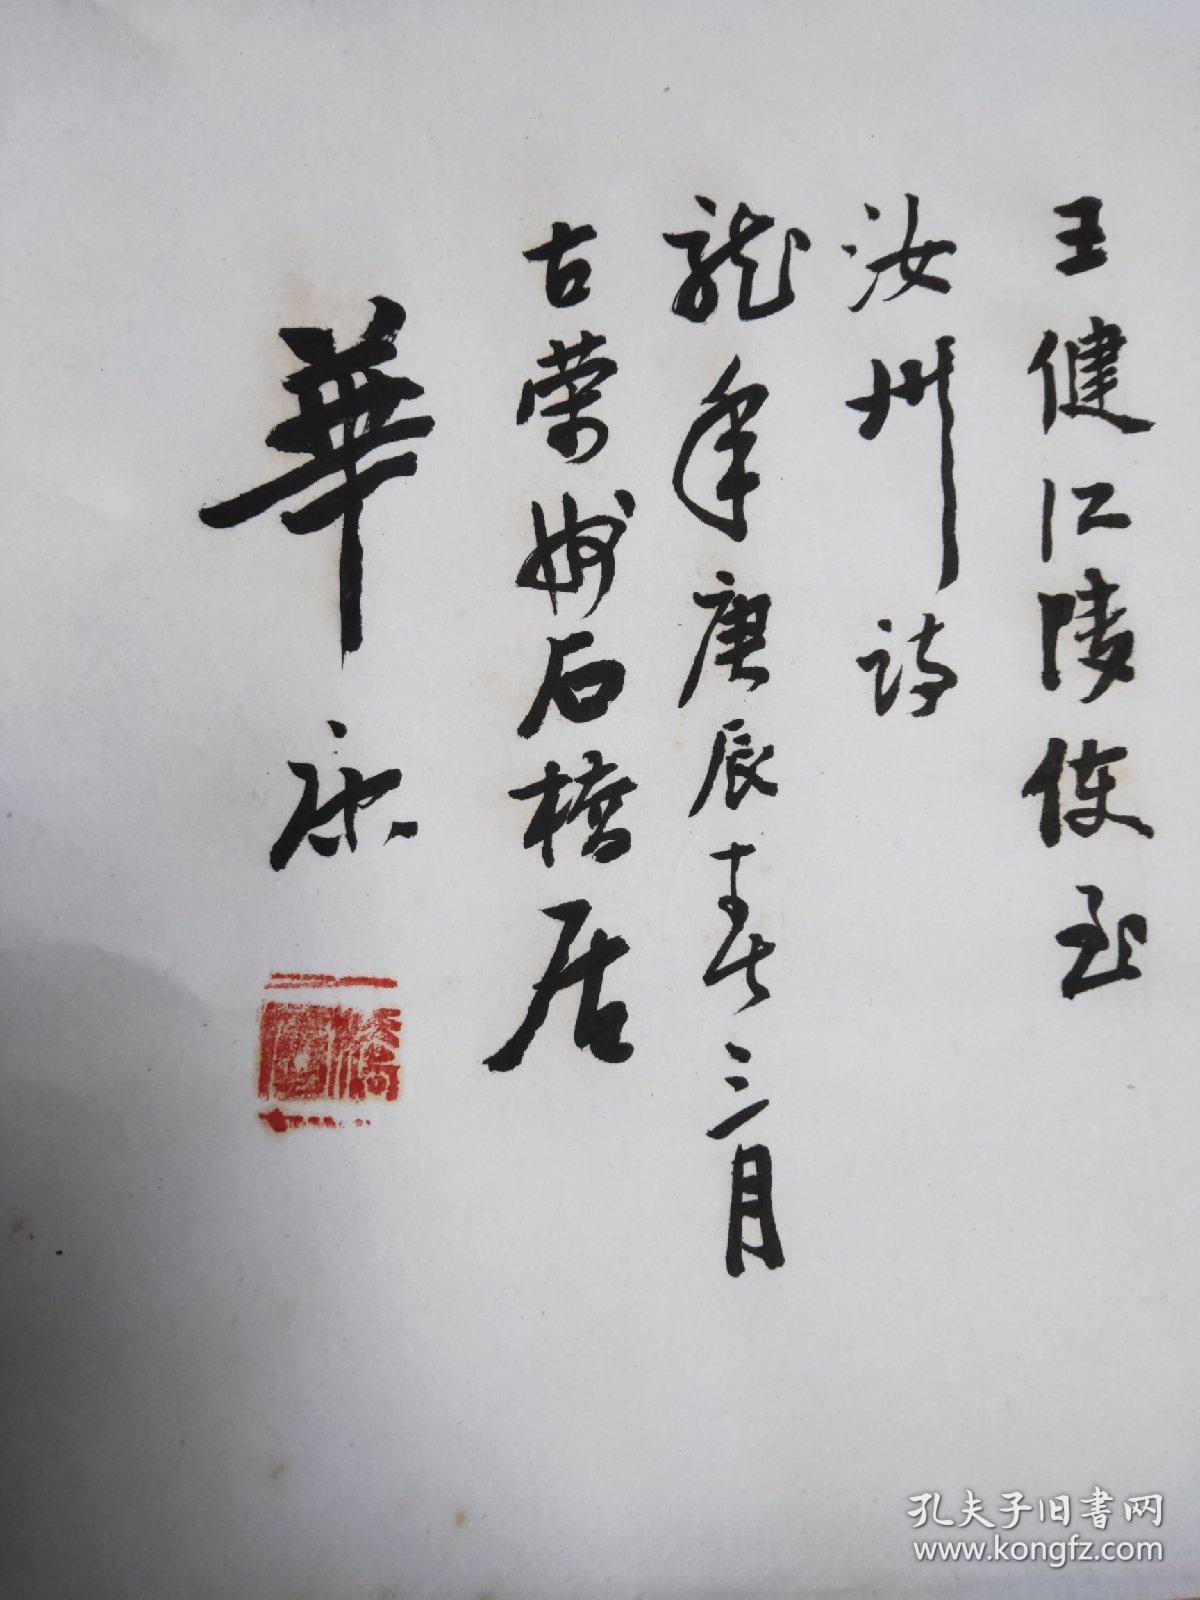 王健江陵使至
汝州詩
龍年庚辰春三月
古荣州石橋居
華康
孔夫子旧书网
www.kongfz.com